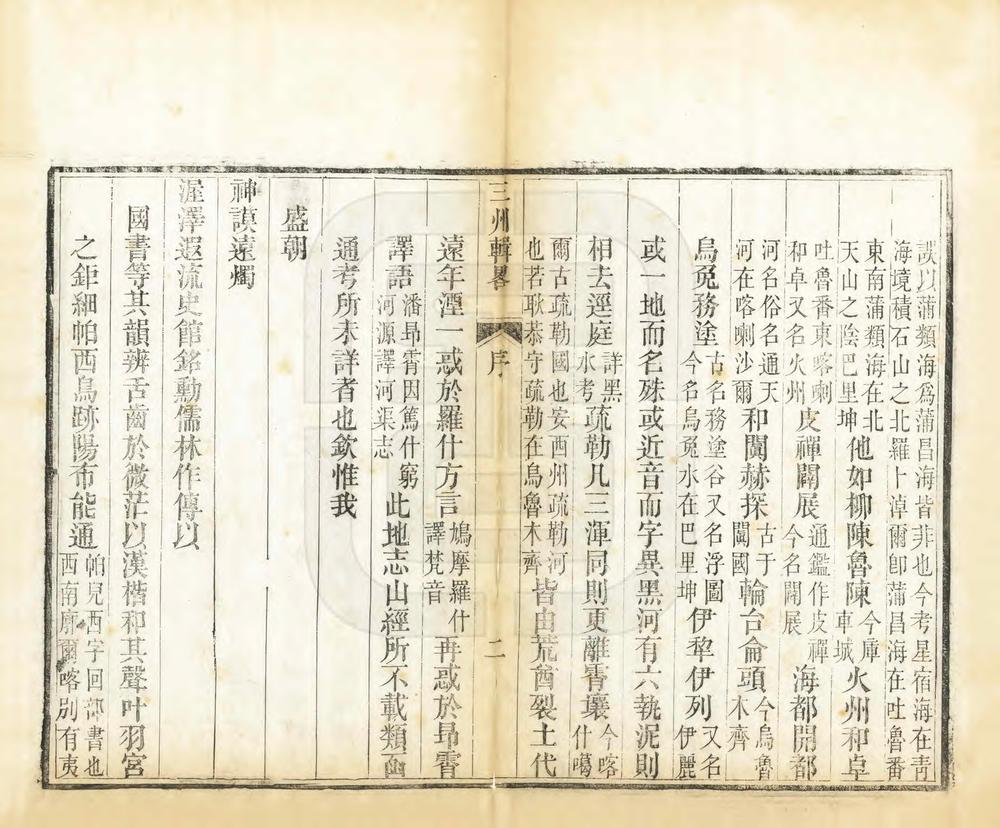 誤以蒲類海爲蒲昌海皆菲也今考星宿海在靑
海境積石山之北羅卜淖爾卽蒲昌海在吐魯番
東南蒲類海在北天山之陰巴里坤他如柳陳魯陳今庫車城火州和卓
吐魯番東喀喇和卓又名火州皮禪闢展通鑑作皮禪今名闢展海都開都
河名俗名通天河在喀喇沙爾和闐赫探古于闐國輪台侖頭今烏魯木齊
烏兔務塗古名務塗谷又名浮圖今名烏兔水在巴里坤伊犁伊列又名伊麗
或一地而名殊或近音而字異黑河有六執泥則
相去逕庭詳黑水考疏勒凡三渾同則更離霄壤今喀什噶
爾古疏勒國也安西州疏勒河也若耿恭守疏勒在烏魯木齊皆由荒酋裂土代
三州輯畧 序 二
遠年湮一惑於羅什方言鳩摩羅什譯梵音再惑於昻霄
譯語潘昻霄因篤什窮河源譯河渠志此地志山經所不載類函
通考所未詳者也欽惟我
盛朝
神謨遠燭
渥澤遐流史館銘勳儒林作傳以
國書等其韻辨舌齒於微茫以漢楷和其聲叶羽宮
之鉅細帕西鳥跡陽布能通帕兒西字回部書也西南廓爾喀別有夷